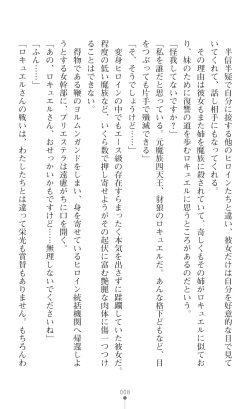 半信半疑で自分に接する他のヒロインたちと違い、彼女だけは自分を好意的な目で見て
いてくれて、話し相手にもなってくれる。
その理由は彼女もまた姉を魔族に殺されていて、奇しくもその姉がロキュエルに似てお
り、妹のために復讐の道を歩むロキュエルに思うところがあるのだという。
「怪我してないですか？」
「私を誰だと思っている。元魔族四天王、豺狼のロキュエルだ。あんな格下どもなど、目
をつぶっても片手で殲滅できる」
「そ、そうでしょうけど……」
変身ヒロインの中でもエース級の存在すらまったく本気を出さずに蹂躙していた彼女だ。
程度の低い魔族など、いくら数で押し寄せようがその起伏に富む艶麗な肉体に傷一つつけ
ることはできない。
得物である鞭のヨルムンガンドをしまい、身を寄せているヒロイン統括機関へ帰還しよ
うとする女幹部に、プリエステラは遠慮がちに口を開く。
「あの、ロキュエルさん、おせっかいかもですけど……無理しないでくださいね」
「ふん……」
「ロキュエルさんの戦いは、わたしたちとは違って栄光も賞賛もありません。もちろんわ
008